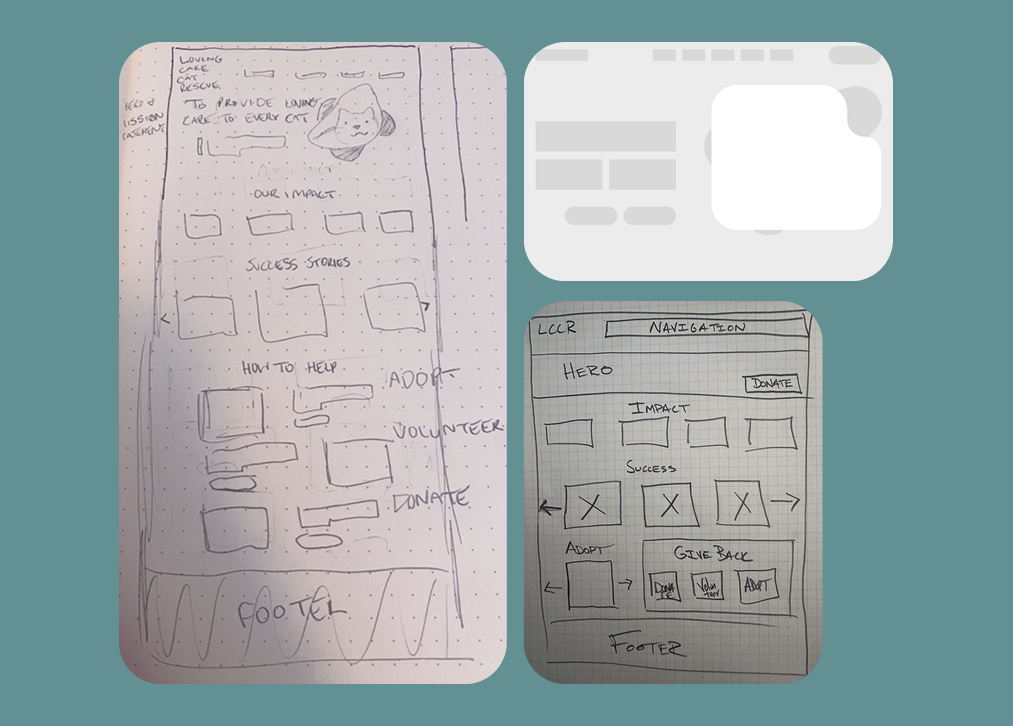 LOVING
CARE
CAT
RESCUE
HERO &
MISSION
STATEMENT
TO PROVIDE LOVING
CARE TO EVERY CAT
OUR IMPACT
SUCCESS STORIES
<
>
HOW TO HELP
ADOPT
VOLUNTEER
DONATE
FOOTER
LCCR
NAVIGATION
HERO
DONATE
IMPACT
SUCCESS
ADOPT
GIVE BACK
DONA
TE
VOLUN
TEER
ADOPT
FOOTER